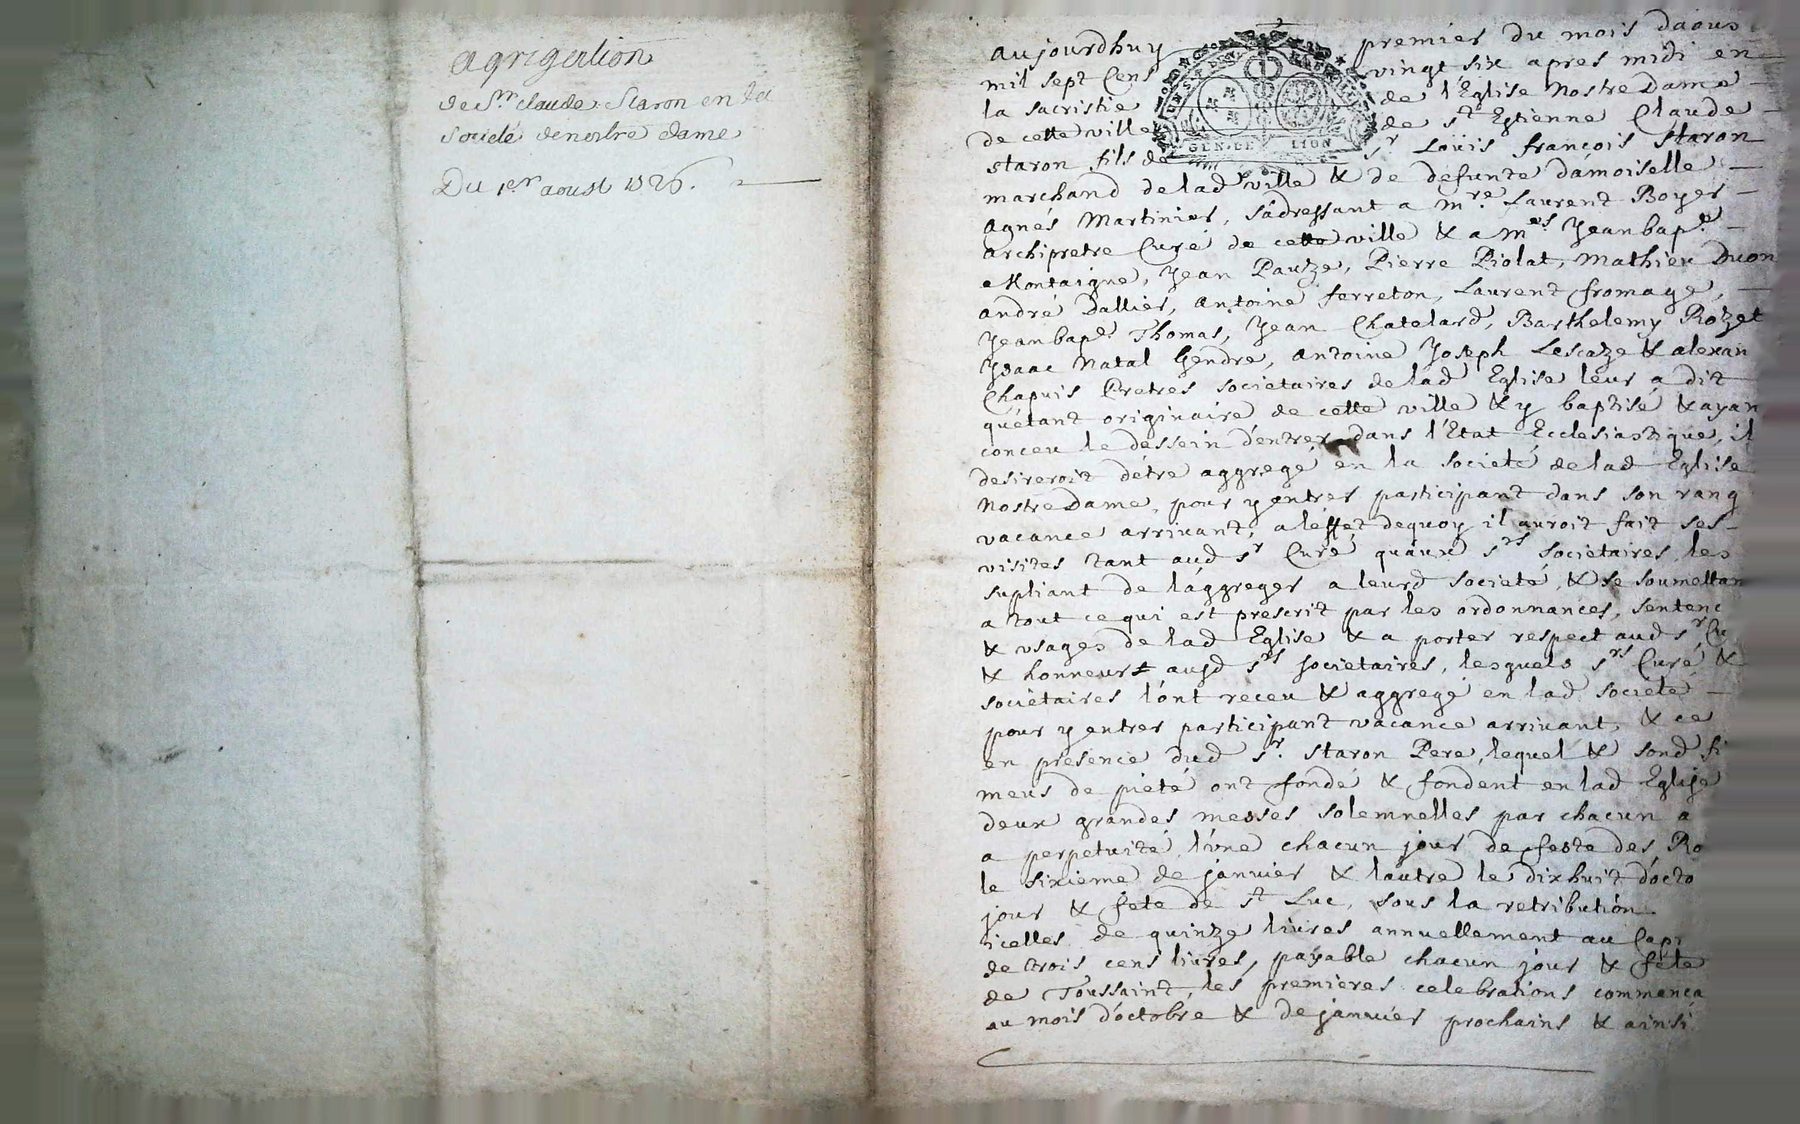 agrigation
de Sr. claude Staron en la
société de nostre dame
Du 1er aoust 1726.
aujourdhuy premier du mois daous
mil sept Cens vingt six apres midi en
la sacristie de l'Eglise Nostre Dame
de cette ville de St Estienne Claude
GEN. DE LION
staron fils de Sr Loüis françois Staron
marchand de lad ville & de defunte damoiselle
Agnés Martinier, s'adressant a Mre. Laurent Boyer
archipretre Curé de cette ville & a Mes. Jean bapt.
Montaigne, Jean Pautze, Pierre Piolat, Mathieu Duon
andré Dallier, Antoine ferreton, Laurent fromage,
Jean bapt. Thomas, Jean Chatelard, Barthelemy Rozet
Ysaac Natal Gendre, antoine Joseph Lescaze & alexan
Chapuis Pretres societaires de lad Eglise leur a dit
quétant originaire de cette ville & y baptisé & ayan
conceu le dessein d'entrer dans l'Etat Ecclesiastique, il
desireroit détre aggregé en la societé de lad Eglise
Nostre Dame, pour y entrer participant dans son rang
vacance arrivant, a léffet dequoy il auroit fait ses
visites tant aud sr Curé quaux srs societaires, les
supliant de lággreger a leurd societé, & se soumettan
a tout ce qui est prescrit par les ordonnances, sentenc
& usages de lad Eglise & a porter respect aud sr Cu
& honneur aud srs societaires, lesquels srs Curé &
sociétaires l'ónt receu & aggregé en lad societé
pour y entrer participant vacance arrivant, & ce
en presence dud sr. staron Pere, lequel & sond fi
meus de piété ont fondé & fondent en lad Eglise
deux grandes messes solemnelles par chacun a
a perpetuité l'úne chacun jour de feste des Ro
le sixieme de janvier & lautre le dixhuit d'octo
jour & fete de st Luc, sous la retribution
icelles de quinze livres annuellement au Capi
de trois cens livres, payable chacun jour & féte
de Toussaint, les premieres celebrations commença
au mois d'octobre & de janvier prochains & ainsi